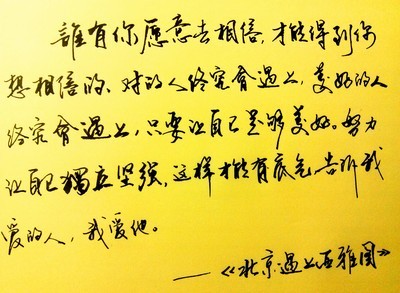 誰有你愿意去相信,才能得到你
想相信的、对的人终究會遇上,美好的人
终究會遇上,只要让自己足够美好。努力
让自己獨立坚强,这样才能有底气告诉我
爱的人,我爱他。
——《北京遇上西雅图》